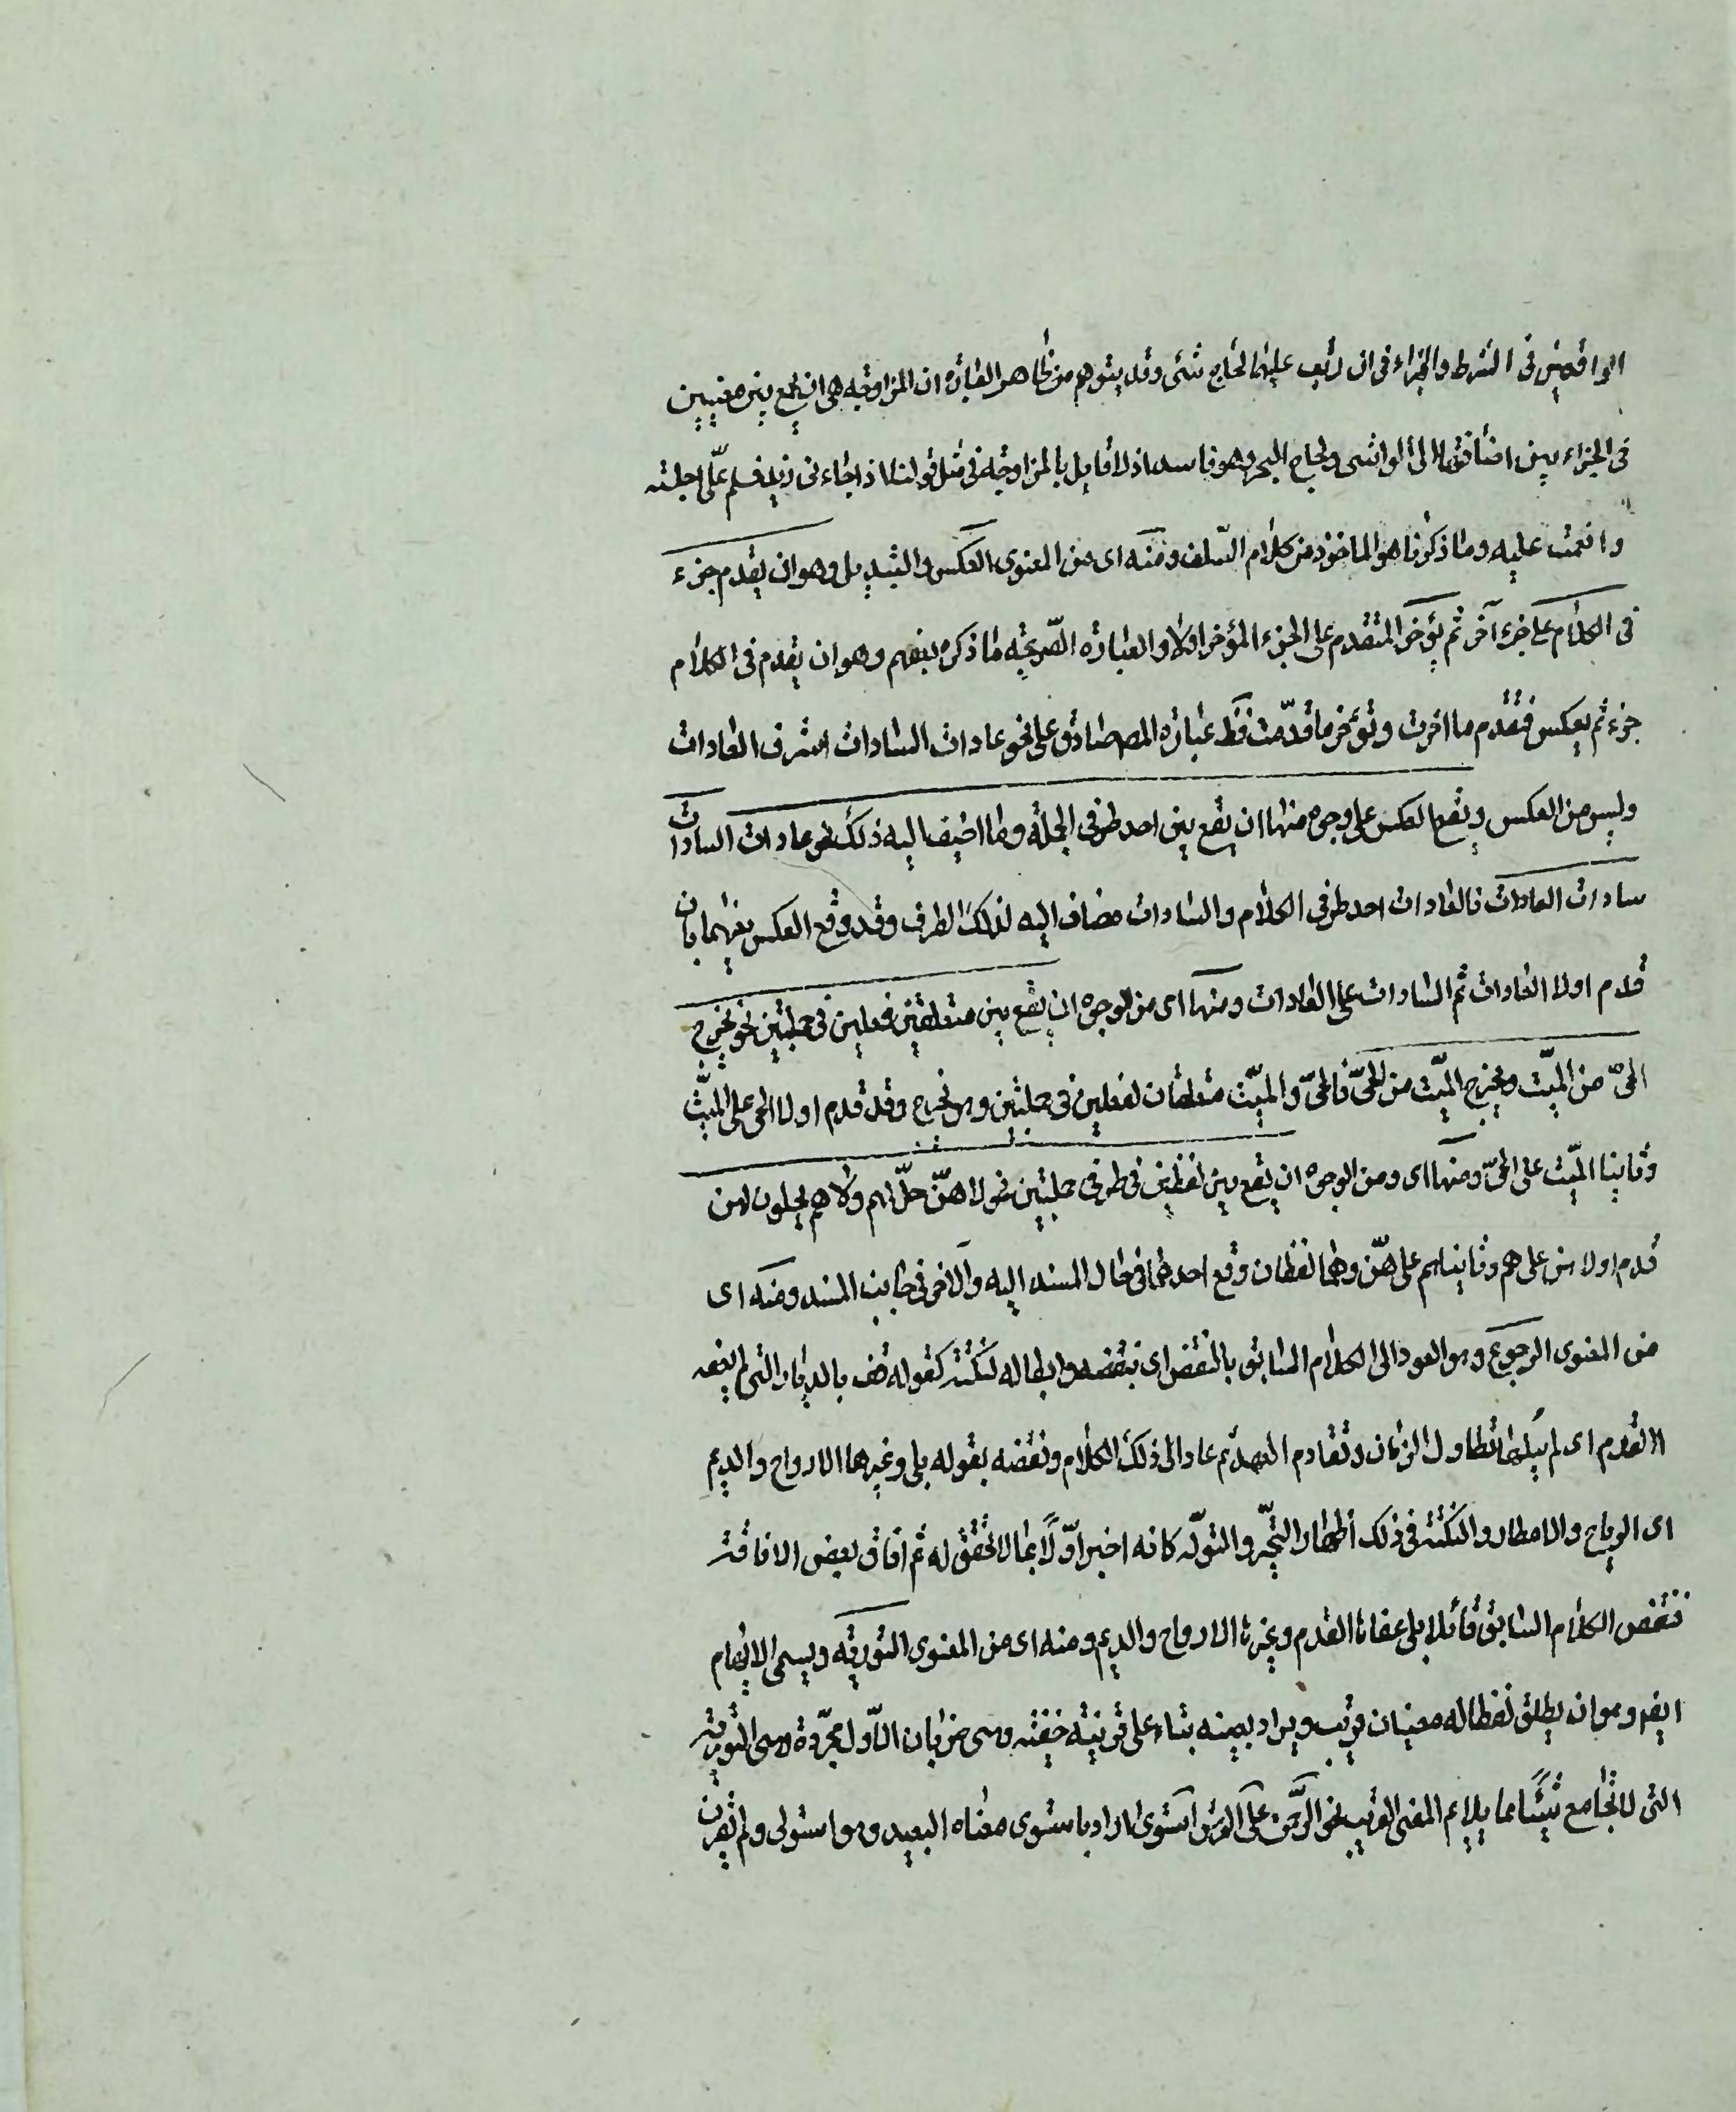 الواقعين في الشرط والجزاء في ان رتب عليهما لجاج شئ وقد يتوهم من ظاهر العبارة ان المزاوجة هي ان يجمع بين معنيين
في الجزاء بين اصاختها الى الواشي ولجاج الهجر وهو فاسد اذ لا قايل بالمزاوجة في مثل قولنا اذا جاءني زيد فسلم علي اجلسته
وانعمت عليه وما ذكرنا هو الماخوذ من كلام السلف ومنه اى من المعنوى العكس والتبديل وهو ان يقدم جزء
فى الكلام على جزء آخر ثم يؤخر المتقدم على الجزء المؤخر اولا والعبارة الصريحة ما ذكره بعضهم وهو ان تقدم فى الكلام
جزء ثم يعكس فتقدم ما اخرت وتؤخر ما قدمت فظ عبارة المص صادق على نحو عادات السادات اشرف العادات
وليس من العكس ويقع العكس على وجوه منها ان يقع بين احد طرفي الجملة وما اضيف اليه ذلك نحو عادات السادات
سادات العادات فالعادات احد طرفي الكلام والسادات مضاف اليه لذلك الطرف وقد وقع العكس بينهما بان
قدم اولا العادات ثم السادات على العادات ومنها اى من الوجوه ان يقع بين متعلقين فعلين في جملتين نحو يخرج
الحي من الميت ويخرج الميت من الحي فالحي والميت متعلقان لفعلين في جملتين وهو يخرج وقد قدم اولا الحي على الميت
وثانيا الميت على الحي ومنها اى ومن الوجوه ان يقع بين لفظين في طرفي جملتين نحو لا هن حل لهم ولا هم يحلون لهن
قدم اولا هن على هم وثانيا هم على هن وهما لفظان وقع احدهما في حال المسند اليه والآخر في جانب المسند ومنه اى
من المعنوى الرجوع وهو العود الى الكلام السابق بالنقض اى بنقضه وابطاله لنكتة كقوله قف بالديار التي لم يعفها
القدم اى لم يبلها تطاول الزمان وتقادم العهد ثم عاد الى ذلك الكلام ونقضه بقوله بلى وغيرها الارواح والديم
اى الرياح والامطار والنكتة في ذلك اظهار التحير والتوله كانه اخبر اولا بما لا تحقق له ثم افاق بعض الافاقة
فنقض الكلام السابق قائلا بلى عفاها القدم وغيرها الارواح والديم ومنه اى من المعنوى التورية ويسمى الايهام
ايضا وهو ان يطلق لفظ له معنيان قريب وبعيد ويراد بعيده بناء على قرينة خفية وهى ضربان الاول مجردة وهى التورية
التي لا تجامع شيئا مما يلايم المعنى القريب نحو الرحمن على العرش استوى اراد باستوى معناه البعيد وهو استولى ولم يقرن